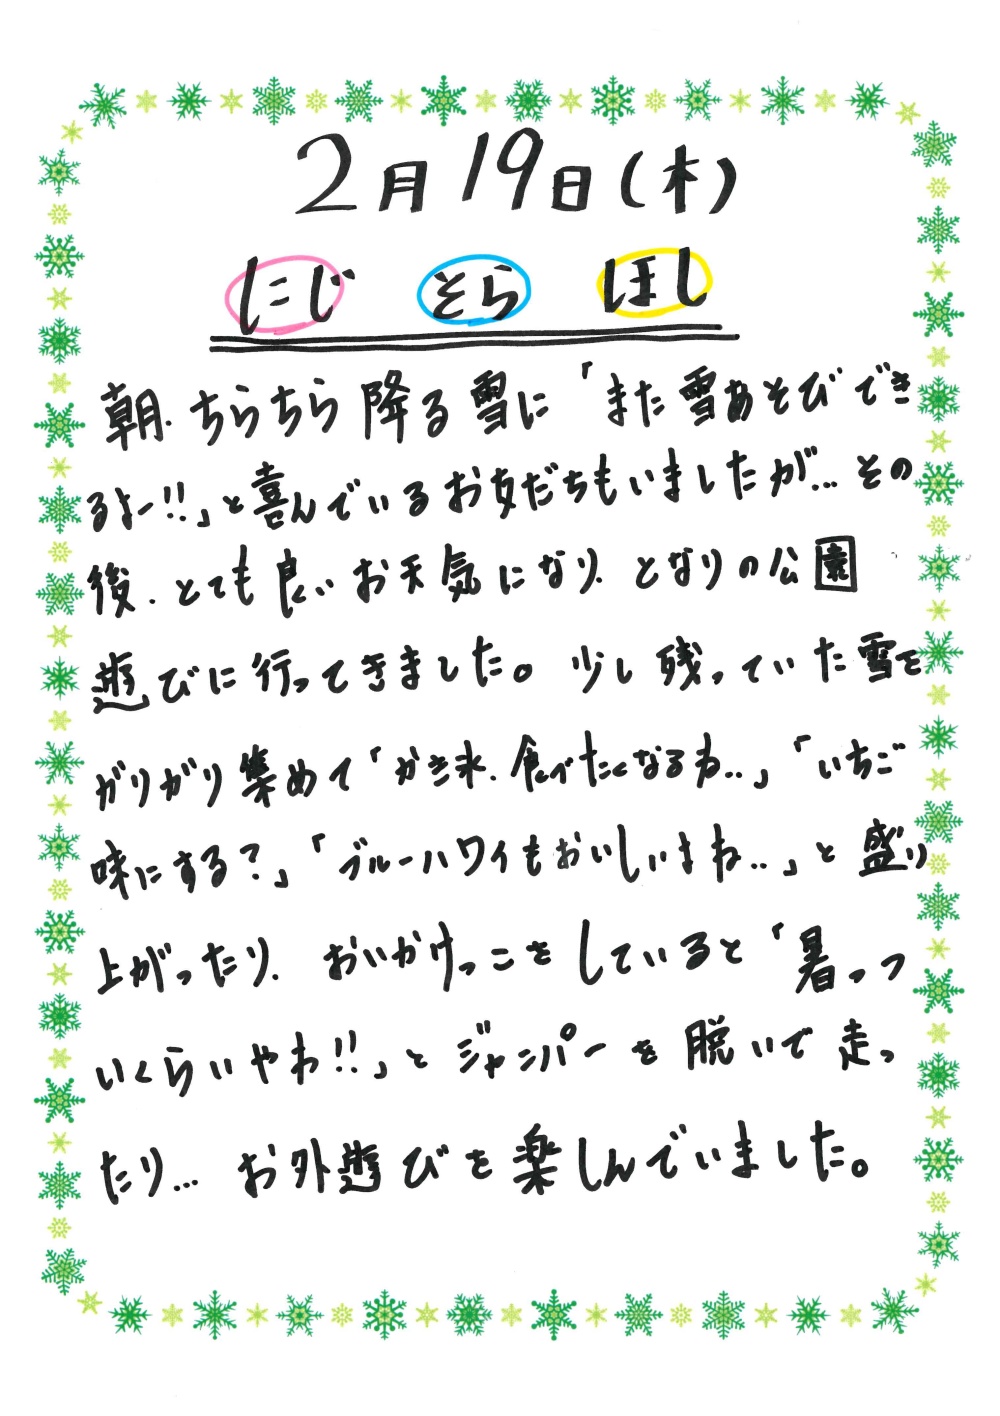 2月19日(木)
にじ そら ほし
朝、ちらちら降る雪に「また雪あそびでき
るよー!!」と喜んでいるお友だちもいましたが…その
後、とても良いお天気になり、となりの公園
遊びに行ってきました。少し残っていた雪を
ガリガリ集めて「かき氷、食べたくなるね‥」「いちご
味にする?」「ブルーハワイもおいしいよね‥」と盛り
上がったり、おいかけっこをしていると「暑っつ
いくらいやわ!!」とジャンパーを脱いで走っ
たり… お外遊びを楽しんでいました。